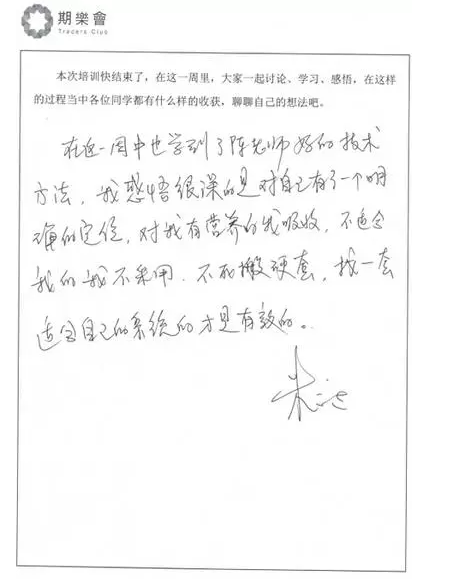 期樂會
Tracers Club
本次培训快结束了，在这一周里，大家一起讨论、学习、感悟，在这样
的过程当中各位同学都有什么样的收获，聊聊自己的想法吧。
在这一周中也学到了陈老师好的技术
方法，我感悟很深的是对自己有了一个明
确的定位，对我有营养的我吸收，不适合
我的我不采用．不死搬硬套，找一套
适合自己的系统的才是有效的。